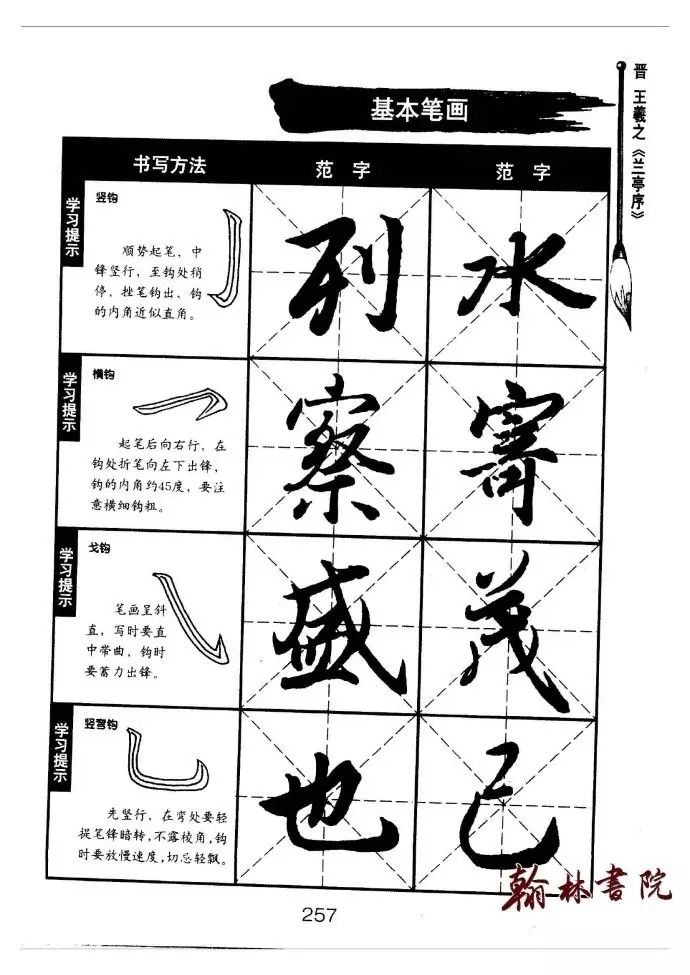 晋 王羲之《兰亭序》
基本笔画
书写方法
范 字
范 字
学习提示
竖钩
顺势起笔，中
锋竖行，至钩处稍
停，挫笔钩出，钩
的内角近似直角。
列
水
学习提示
横钩
起笔后向右行，在
钩处折笔向左下出锋，
钩的内角约45度，要注
意横细钩粗。
察
寄
学习提示
戈钩
笔画呈斜
直，写时要直
中带曲，钩时
要蓄力出锋。
盛
茂
学习提示
竖弯钩
先竖行，在弯处要轻
提笔锋暗转，不露棱角，钩
时要放慢速度，切忌轻飘。
也
己
翰林書院
257